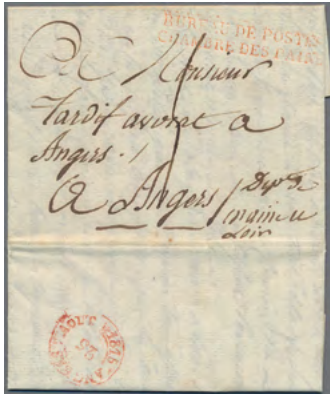 BUREAU DE POSTE
CHAMBRE DES PAIRS
A Monsieur
Tardif avocat a
Angers. /
A Angers / Dep.t de
maine et
Loire
AOUT 1816
26